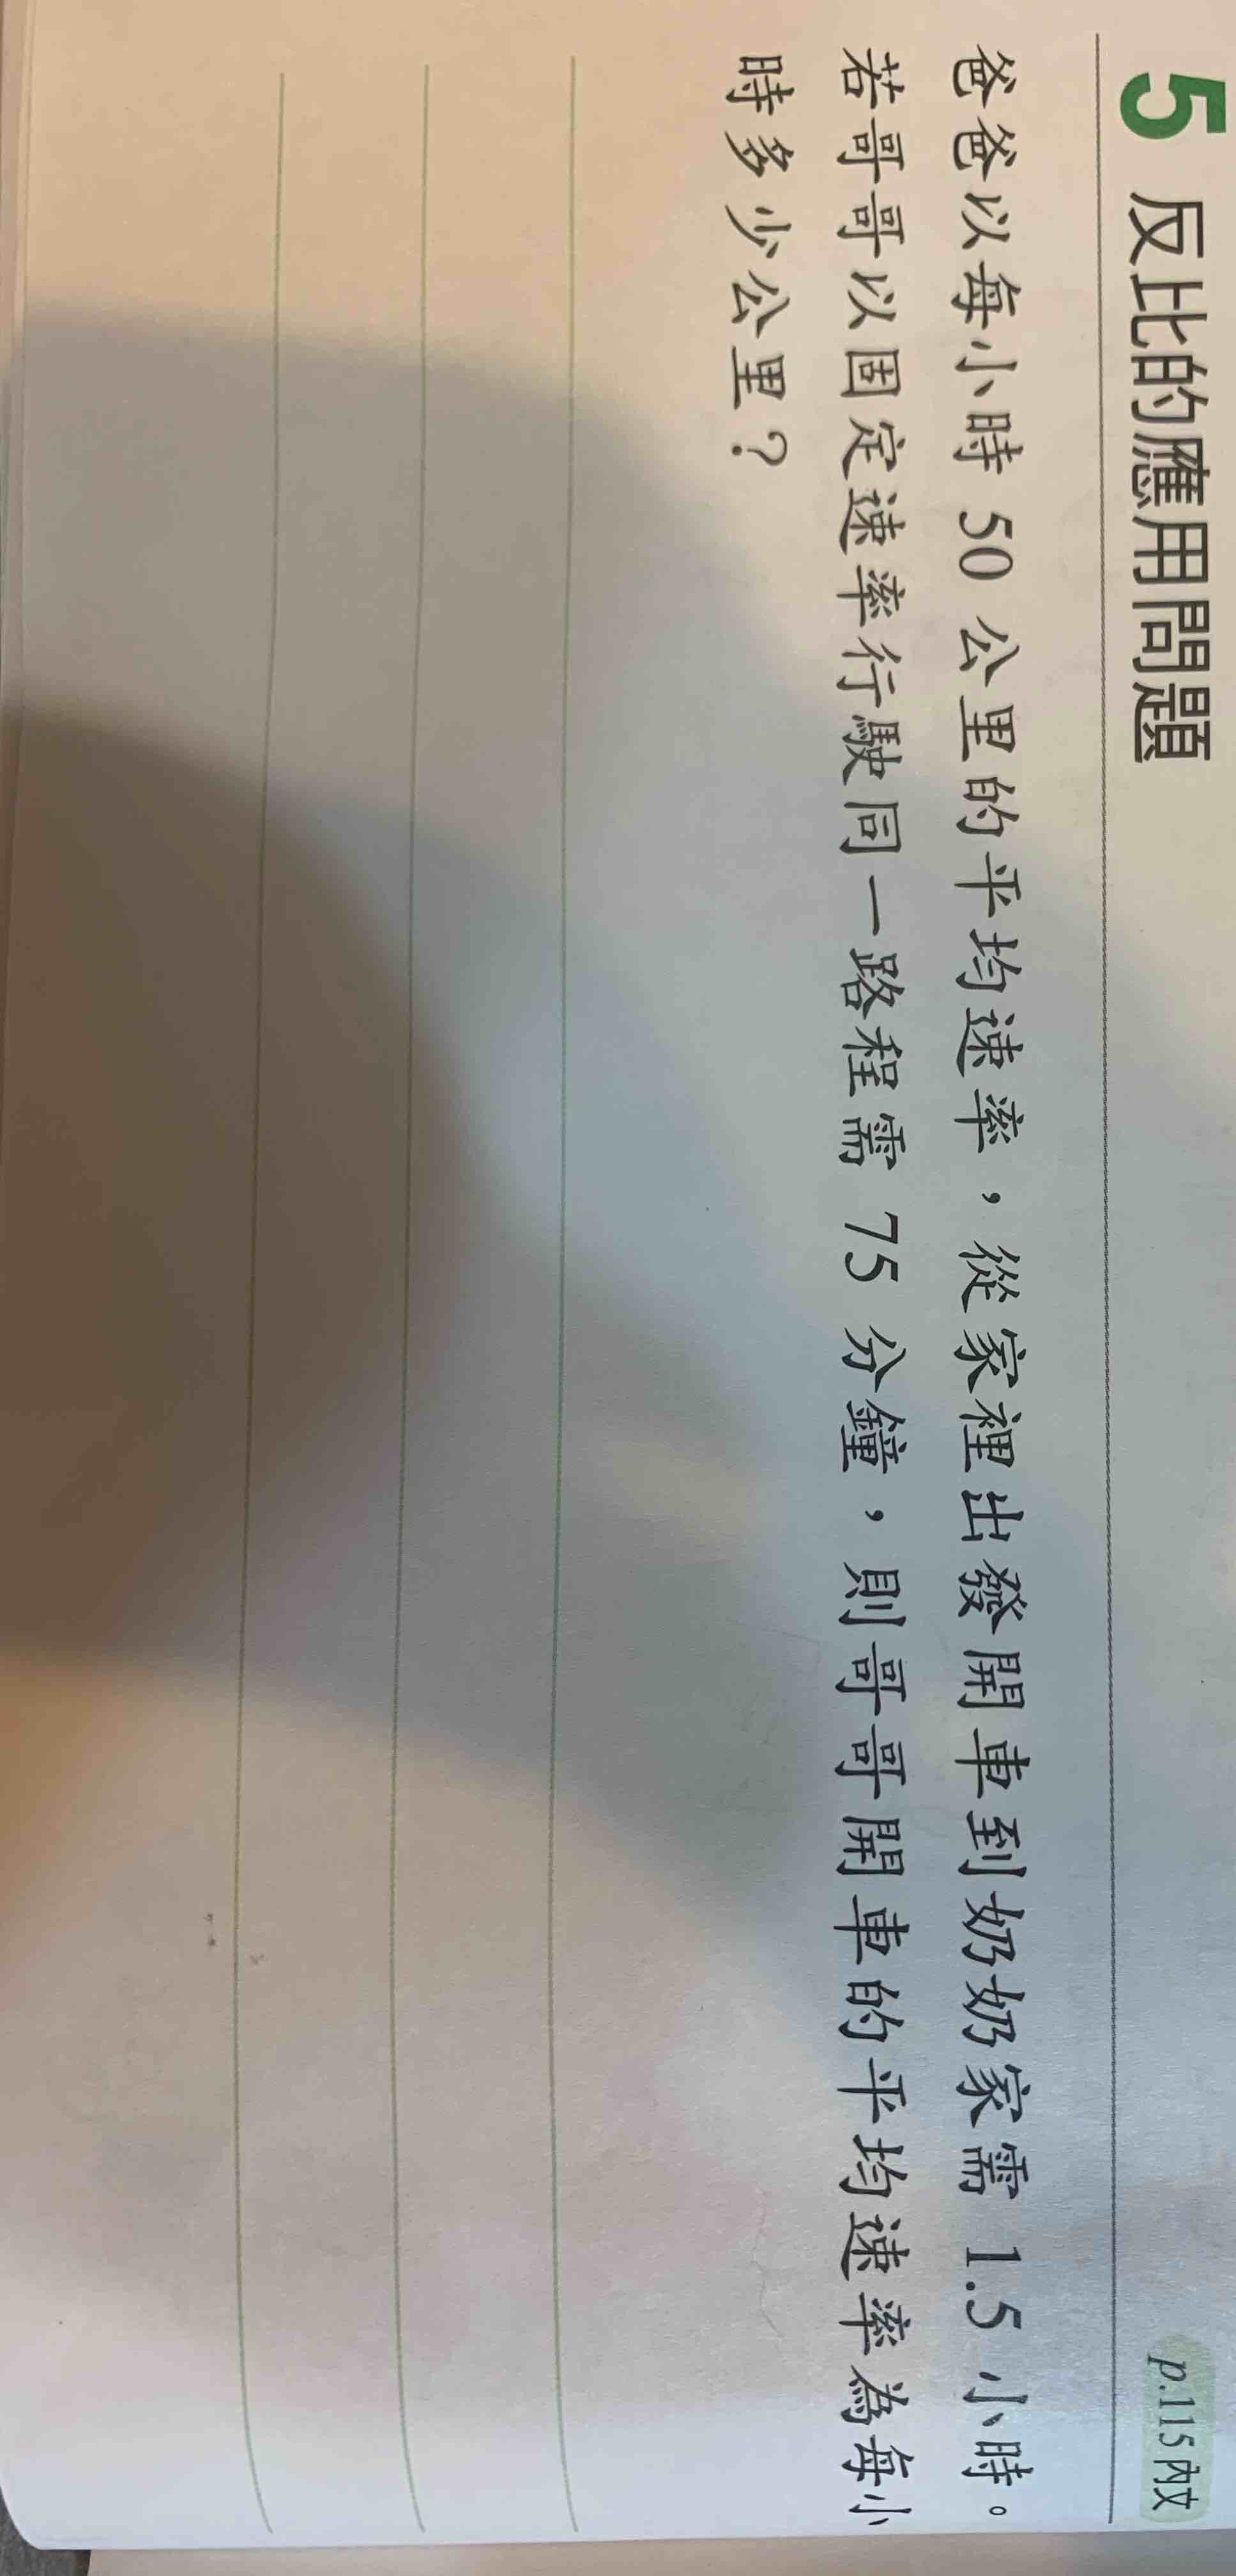 5 反比的應用問題
p.115 內文
爸爸以每小時 50 公里的平均速率，從家裡出發開車到奶奶家需 1.5 小時。
若哥哥以固定速率行駛同一路程需 75 分鐘，則哥哥開車的平均速率為每小
時多少公里？